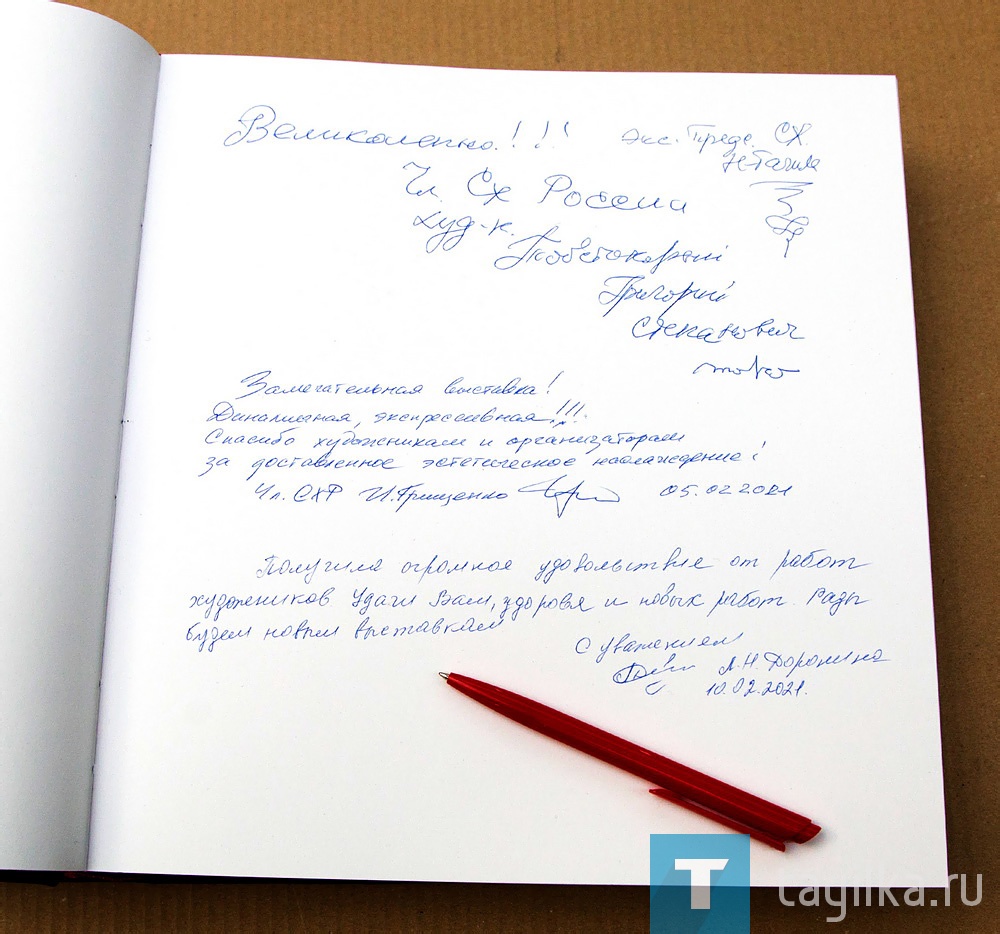 Великолепно!!! экс. Предс. СХ.
Н-Тагила
Чл. СХ России
худ-к.
Григорий
Степанович
Замечательная выставка!
Динамичная, экспрессивная!!!
Спасибо художникам и организаторам
за доставленное эстетическое наслаждение!
Чл. СХР И. Грищенко 05.02 2021
Получила огромное удовольствие от работ
художников Удачи Вам, здоровья и новых работ. Рады
будем новым выставкам
С уважением
Л.Н. Доронина
10.02.2021.
T tagilka.ru